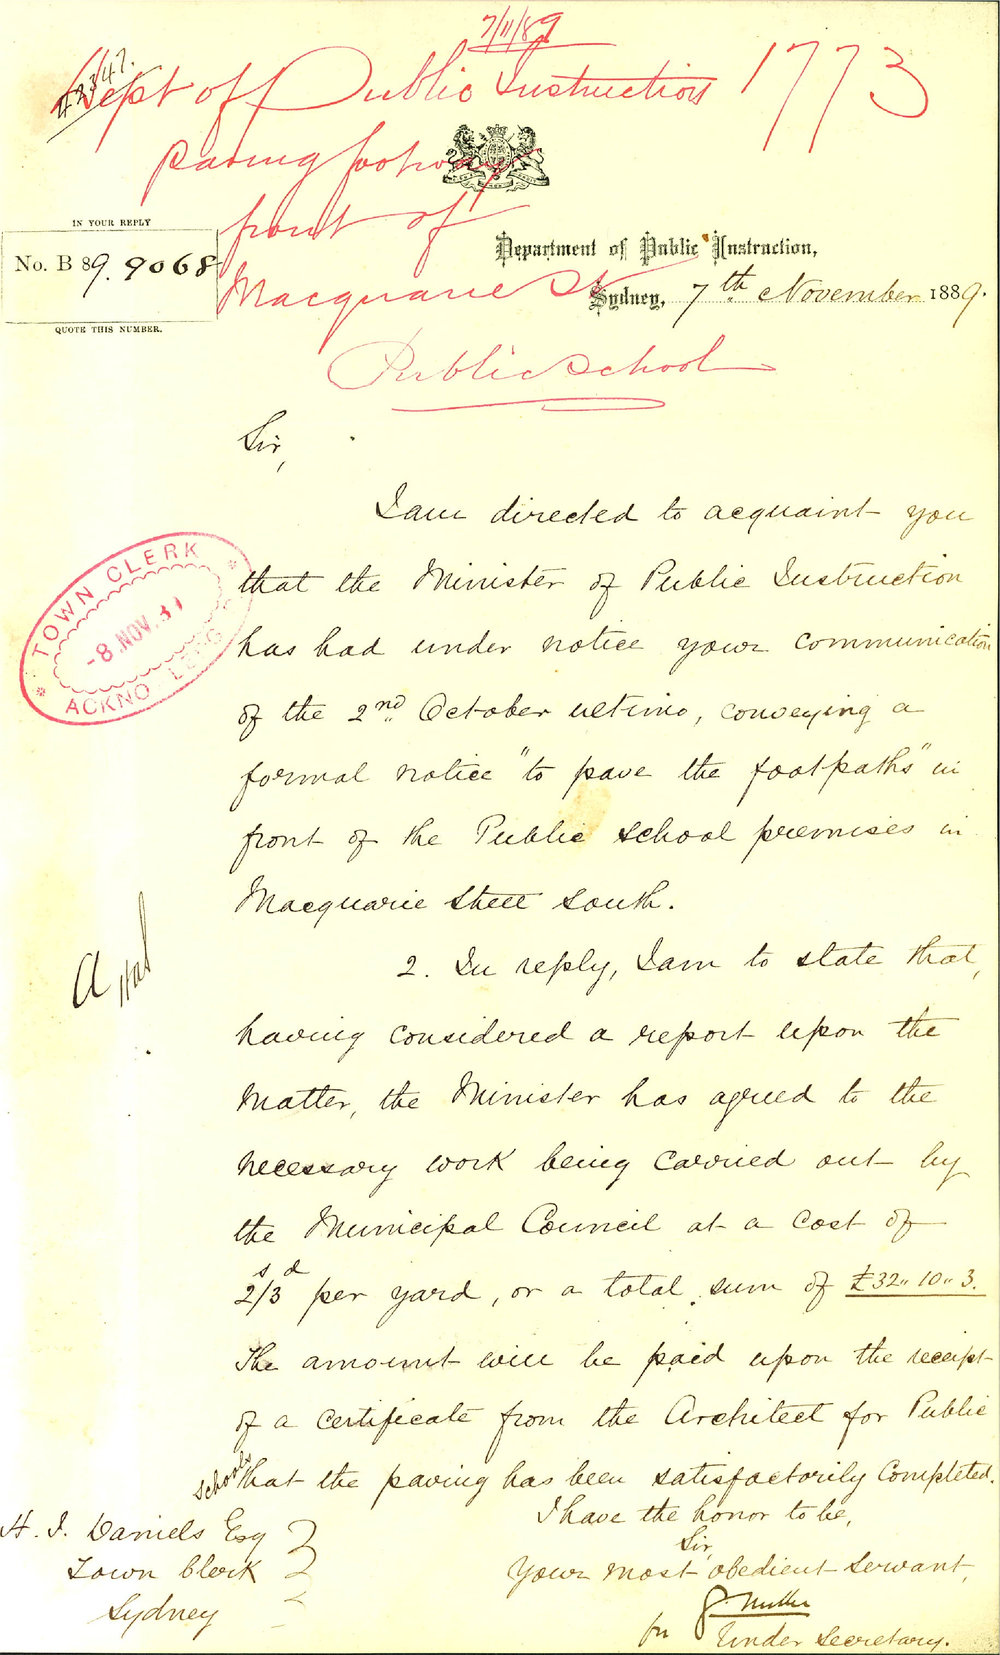 7/11/89
Dept of Public Instruction 1773
paving footway
front of
Macquarie St
Public School
IN YOUR REPLY
No. B 89. 9068
QUOTE THIS NUMBER.
Department of Public Instruction,
Sydney, 7th November 1889.
Sir,
I am directed to acquaint you
that the Minister of Public Instruction
has had under notice your communication
of the 2nd October ultimo, conveying a
formal notice "to pave the footpaths" in
front of the Public School premises in
Macquarie Street South.
TOWN CLERK
-8.NOV.
ACKNO LEDG
2. In reply, I am to state that,
having considered a report upon the
matter, the Minister has agreed to the
necessary work being carried out by
the Municipal Council at a cost of
2s/3d per yard, or a total sum of £32" 10" 3.
The amount will be paid upon the receipt
of a certificate from the Architect for Public
Schools that the paving has been satisfactorily completed.
I have the honor to be,
Sir,
Your most obedient servant,
for Under Secretary.
H. J. Daniels Esq
Town Clerk
Sydney